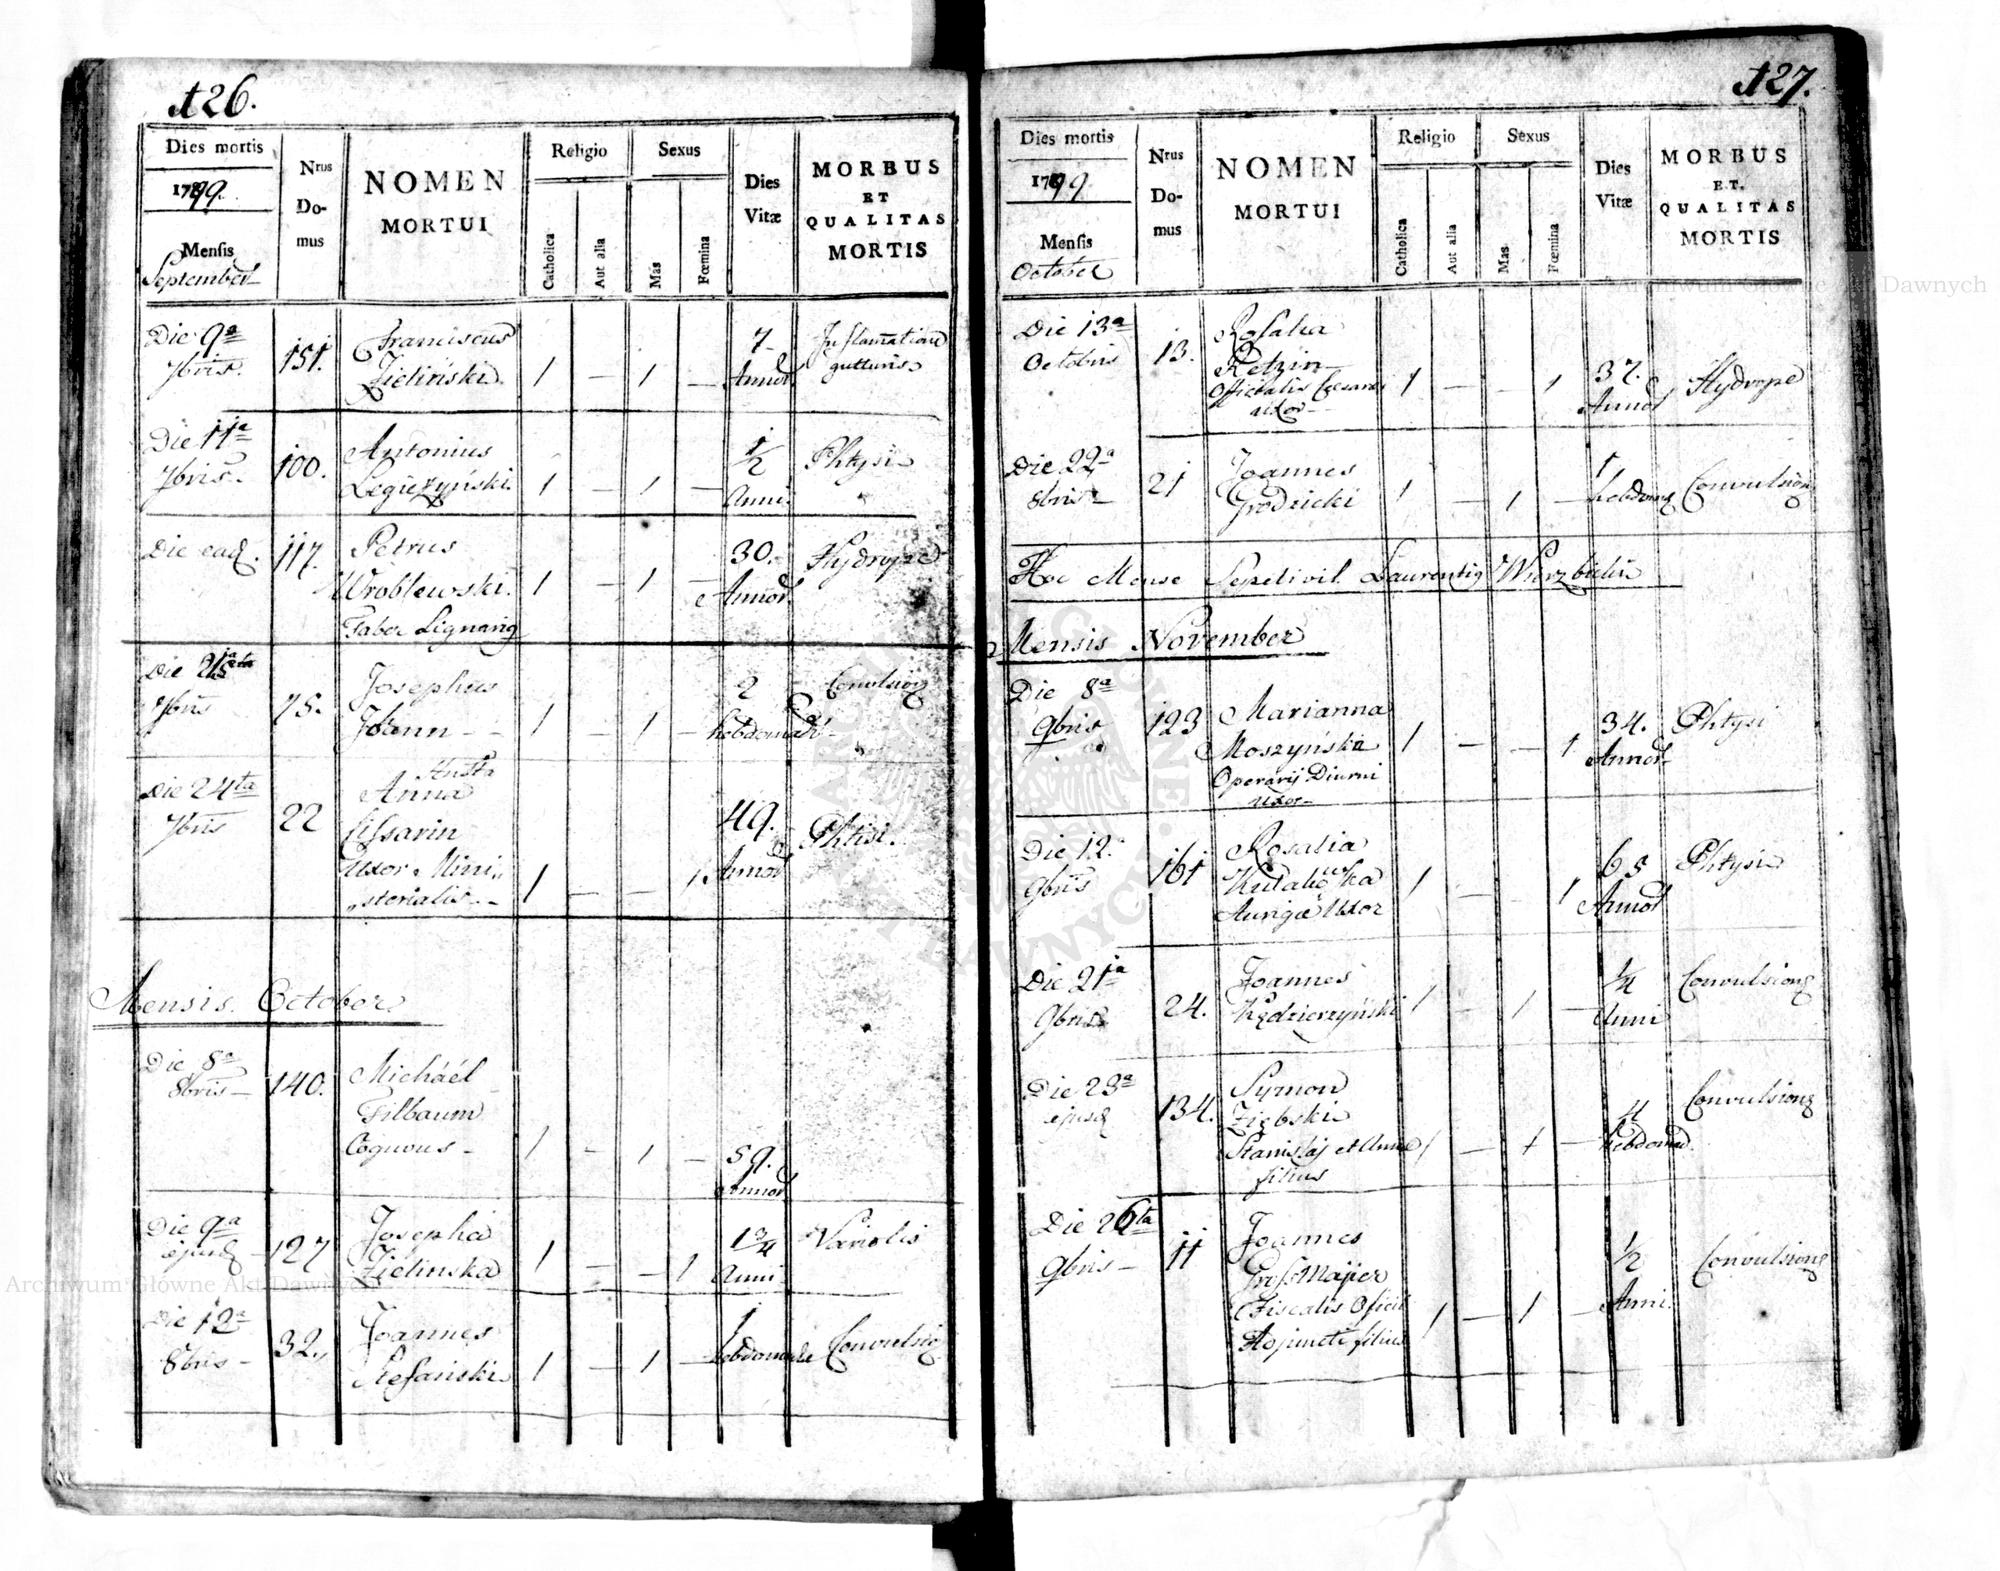 126.
Dies mortis
1799.
Mensis
September
Nrus
Do-
mus
NOMEN
MORTUI
Religio
Catholica
Aut alia
Sexus
Mas
Fœmina
Dies
Vitæ
MORBUS
ET
QUALITAS
MORTIS
Die 9a 7bris. 151. Franciscus Zieliński 1 – 1 – 7 Annor Inflamatione gutturis
Die 11a 7bris. 100. Antonius 1 – 1 – 1/2 Anni Phtysi
Die ead. 117. Petrus Wroblewski. Faber Lignariq 1 – 1 – 30. Annor. Hydrope
Die 7bris 75. Josephus 1 – 1 – 2 hebdomad Convulsioq
Die 24ta 7bris 22 Anna Uxor Mini„ „sterialis 1 – – 1 49. Annor Phtisi.
Mensis October
Die 8a 8bris – 140. Michaël Filbaum Coquus – 1 – 1 – 59. Annor
Die 9a ejusd 127 Josepha Zielinska 1 – – 1 1 3/4 Anni Variolis
Die 12a 8bris – 32. Joannes Stefański 1 – 1 – 1 hebdomade Convulsioq
127.
Dies mortis
1799
Mensis
October
Nrus
Do-
mus
NOMEN
MORTUI
Religio
Catholica
Aut alia
Sexus
Mas
Fœmina
Dies
Vitæ
MORBUS
ET.
QUALITAS
MORTIS
Die 13a Octobris 13. Rosalia Retzin uxor 1 – – 1 37. Annor Hydrope
Die 22a 8bris – 21 Joannes Grodzicki 1 – 1 – 1 Convulsioq
Hoc Mense Sepelivit Laurentiq Wierzbicki
Mensis November
Die 8a 9bris 123 Marianna Moszyńska Operarij Diurni uxor 1 – – 1 34. Annor Phtysi
Die 12. 9bris 161 Rosalia Aurigæ Uxor 1 – – 1 65 Annor Phtysi
Die 21a 9bris 24. Joannes Kędzierzyński 1 – 1 – 1/4 Anni Convulsionq
Die 23a ejusd 134. Symon Ziębski Stanislaj et Annæ filius 1 – 1 – 4 hebdomad. Convulsionq
Die 26ta 9bris – 11 Joannes GrossMajier Fiscalis Oficii Adjuncti filius 1 – 1 – 1/2 Anni. Convulsionq
Archiwum Główne Akt Dawnych
Archiwum Główne Akt Dawnych
ARCHIWUM GŁÓWNE AKT DAWNYCH